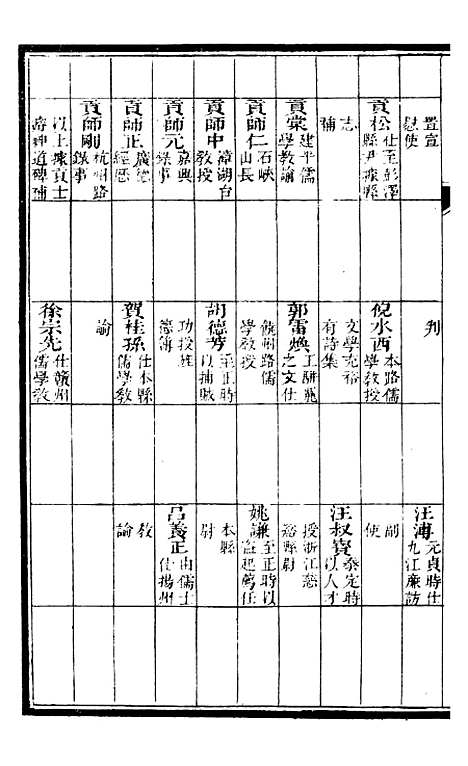 置宣慰使
貢松 仕至彭澤縣尹據縣
志補
貢棠 建平儒學教諭
貢師仁 石峽山長
貢師中 漳湖台教授
貢師元 嘉興錄事
貢師正 廣德經歷
貢師剛 杭州路錄事
以上據貢士 神道碑補
判
倪水西 本路儒學教授
文學充裕有詩集
郭雷煥 工駢儷之文仕
饒州路儒學教授
胡德芳 至正時以捕賊
功授旌德簿
賀桂孫 仕本縣儒學教
諭
徐宗先 仕贛州儒學教
汪溥 元貞時仕九江廉訪
副使
汪叔寶 泰定時以人才
授浙江慈谿縣尉
姚謙 至正時以盜起薦任
本縣尉
呂養正 由儒士仕揚州
教諭